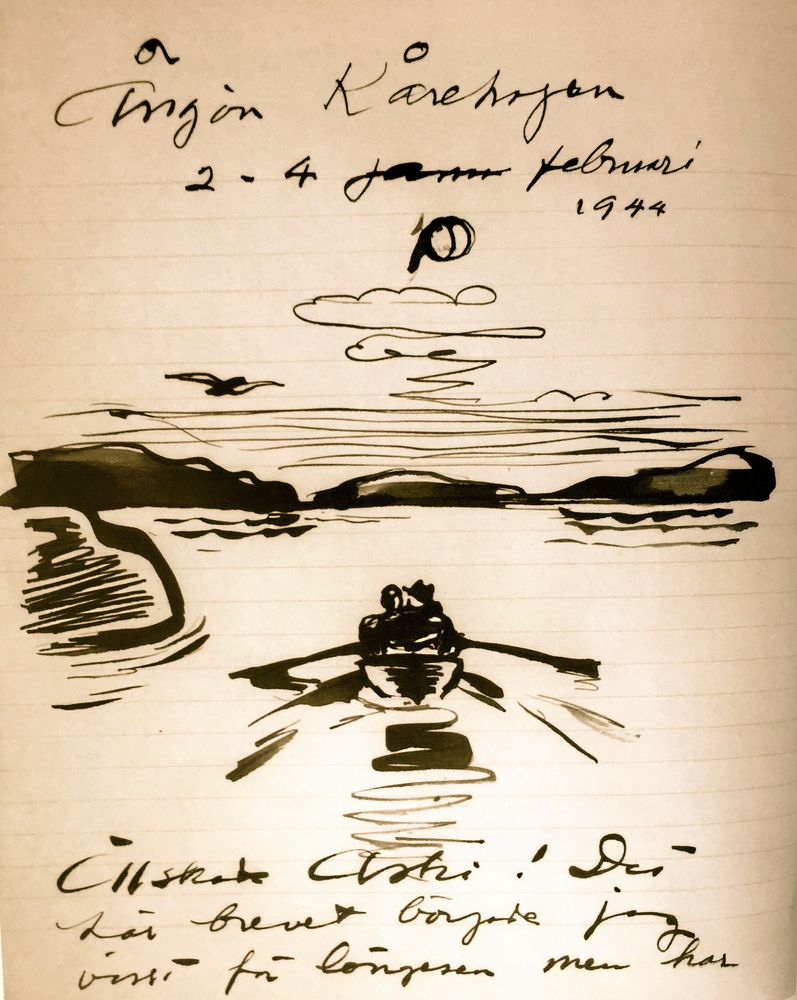 Ängön Kårehogen
2 - 4 februari
1944
Älskade Astri! Det
här brevet började jag
visst för längesen men har